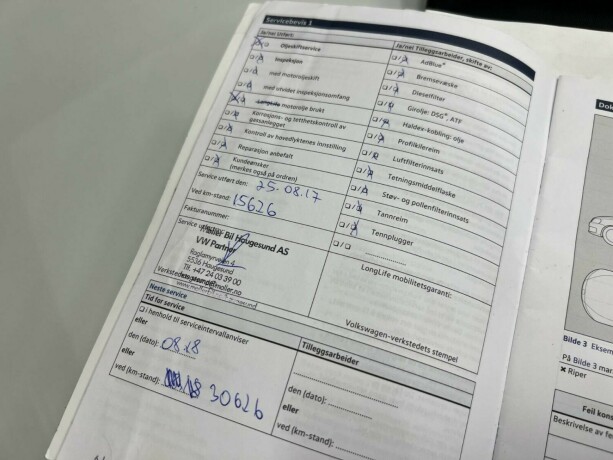 Servicebevis 1
Ja/nei Utført:
Oljeskiftservice
Inspeksjon
med motoroljeskift
med utvidet inspeksjonsomfang
LongLife motorolje brukt
Korrosjons- og tetthetskontroll av
Kontroll av hovedlyktenes innstilling
Reparasjon anbefalt
Kundeønsker
(merkes også på ordren)
Service utført den: 25.08.17
Ved km-stand: 15626
Fakturanummer:
Ja/nei Tilleggsarbeider, skifte av:
AdBlue®
Bremsevæske
Dieselfilter
Girolje: DSG®, ATF
Haldex-kobling: olje
Profilkilereim
Luftfilterinnsats
Tetningsmiddelflaske
Støv- og pollenfilterinnsats
Tannreim
Tennplugger
Møller Bil Haugesund AS
VW Partner
5536 Haugesund
Tlf. +47 24 03 39 00
LongLife mobilitetsgaranti:
Volkswagen-verkstedets stempel
Neste service
Tid for service
i henhold til serviceintervallanviser
eller
den (dato): 08.18
eller
ved (km-stand): 30626
Tilleggsarbeider
den (dato):
eller
ved (km-stand):
Dok
Bilde 3 Eksem
På Bilde 3 mar
× Riper
Feil kons
Beskrivelse av fe